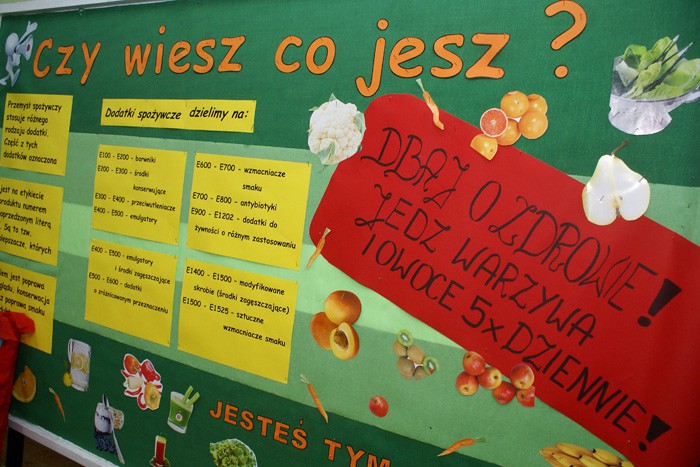 Czy wiesz co jesz ?
Przemysł spożywczy
stosuje różnego
rodzaju dodatki.
Część z tych
dodatków oznaczona
jest na etykiecie
produktu numerem
poprzedzonym literą
Są to tzw.
ulepszacze, których
jest poprawa
konserwacja
poprawa smaku
Dodatki spożywcze dzielimy na:
E100 - E200 - barwniki
E200 - E300 - środki
konserwujące
E300 - E400 - przeciwutleniacze
E400 - E500 - emulgatory
E600 - E700 - wzmacniacze
smaku
E700 - E800 - antybiotyki
E900 - E1202 - dodatki do
żywności o różnym zastosowaniu
E400 - E500 - emulgatory
i środki zagęszczające
E500 - E600 - dodatki
o zróżnicowanym przeznaczeniu
E1400 - E1500 - modyfikowane
skrobie (środki zagęszczające)
E1500 - E1525 - sztuczne
wzmacniacze smaku
DBAJ O ZDROWIE!
JEDZ WARZYWA
I OWOCE 5x DZIENNIE!
JESTEŚ TYM